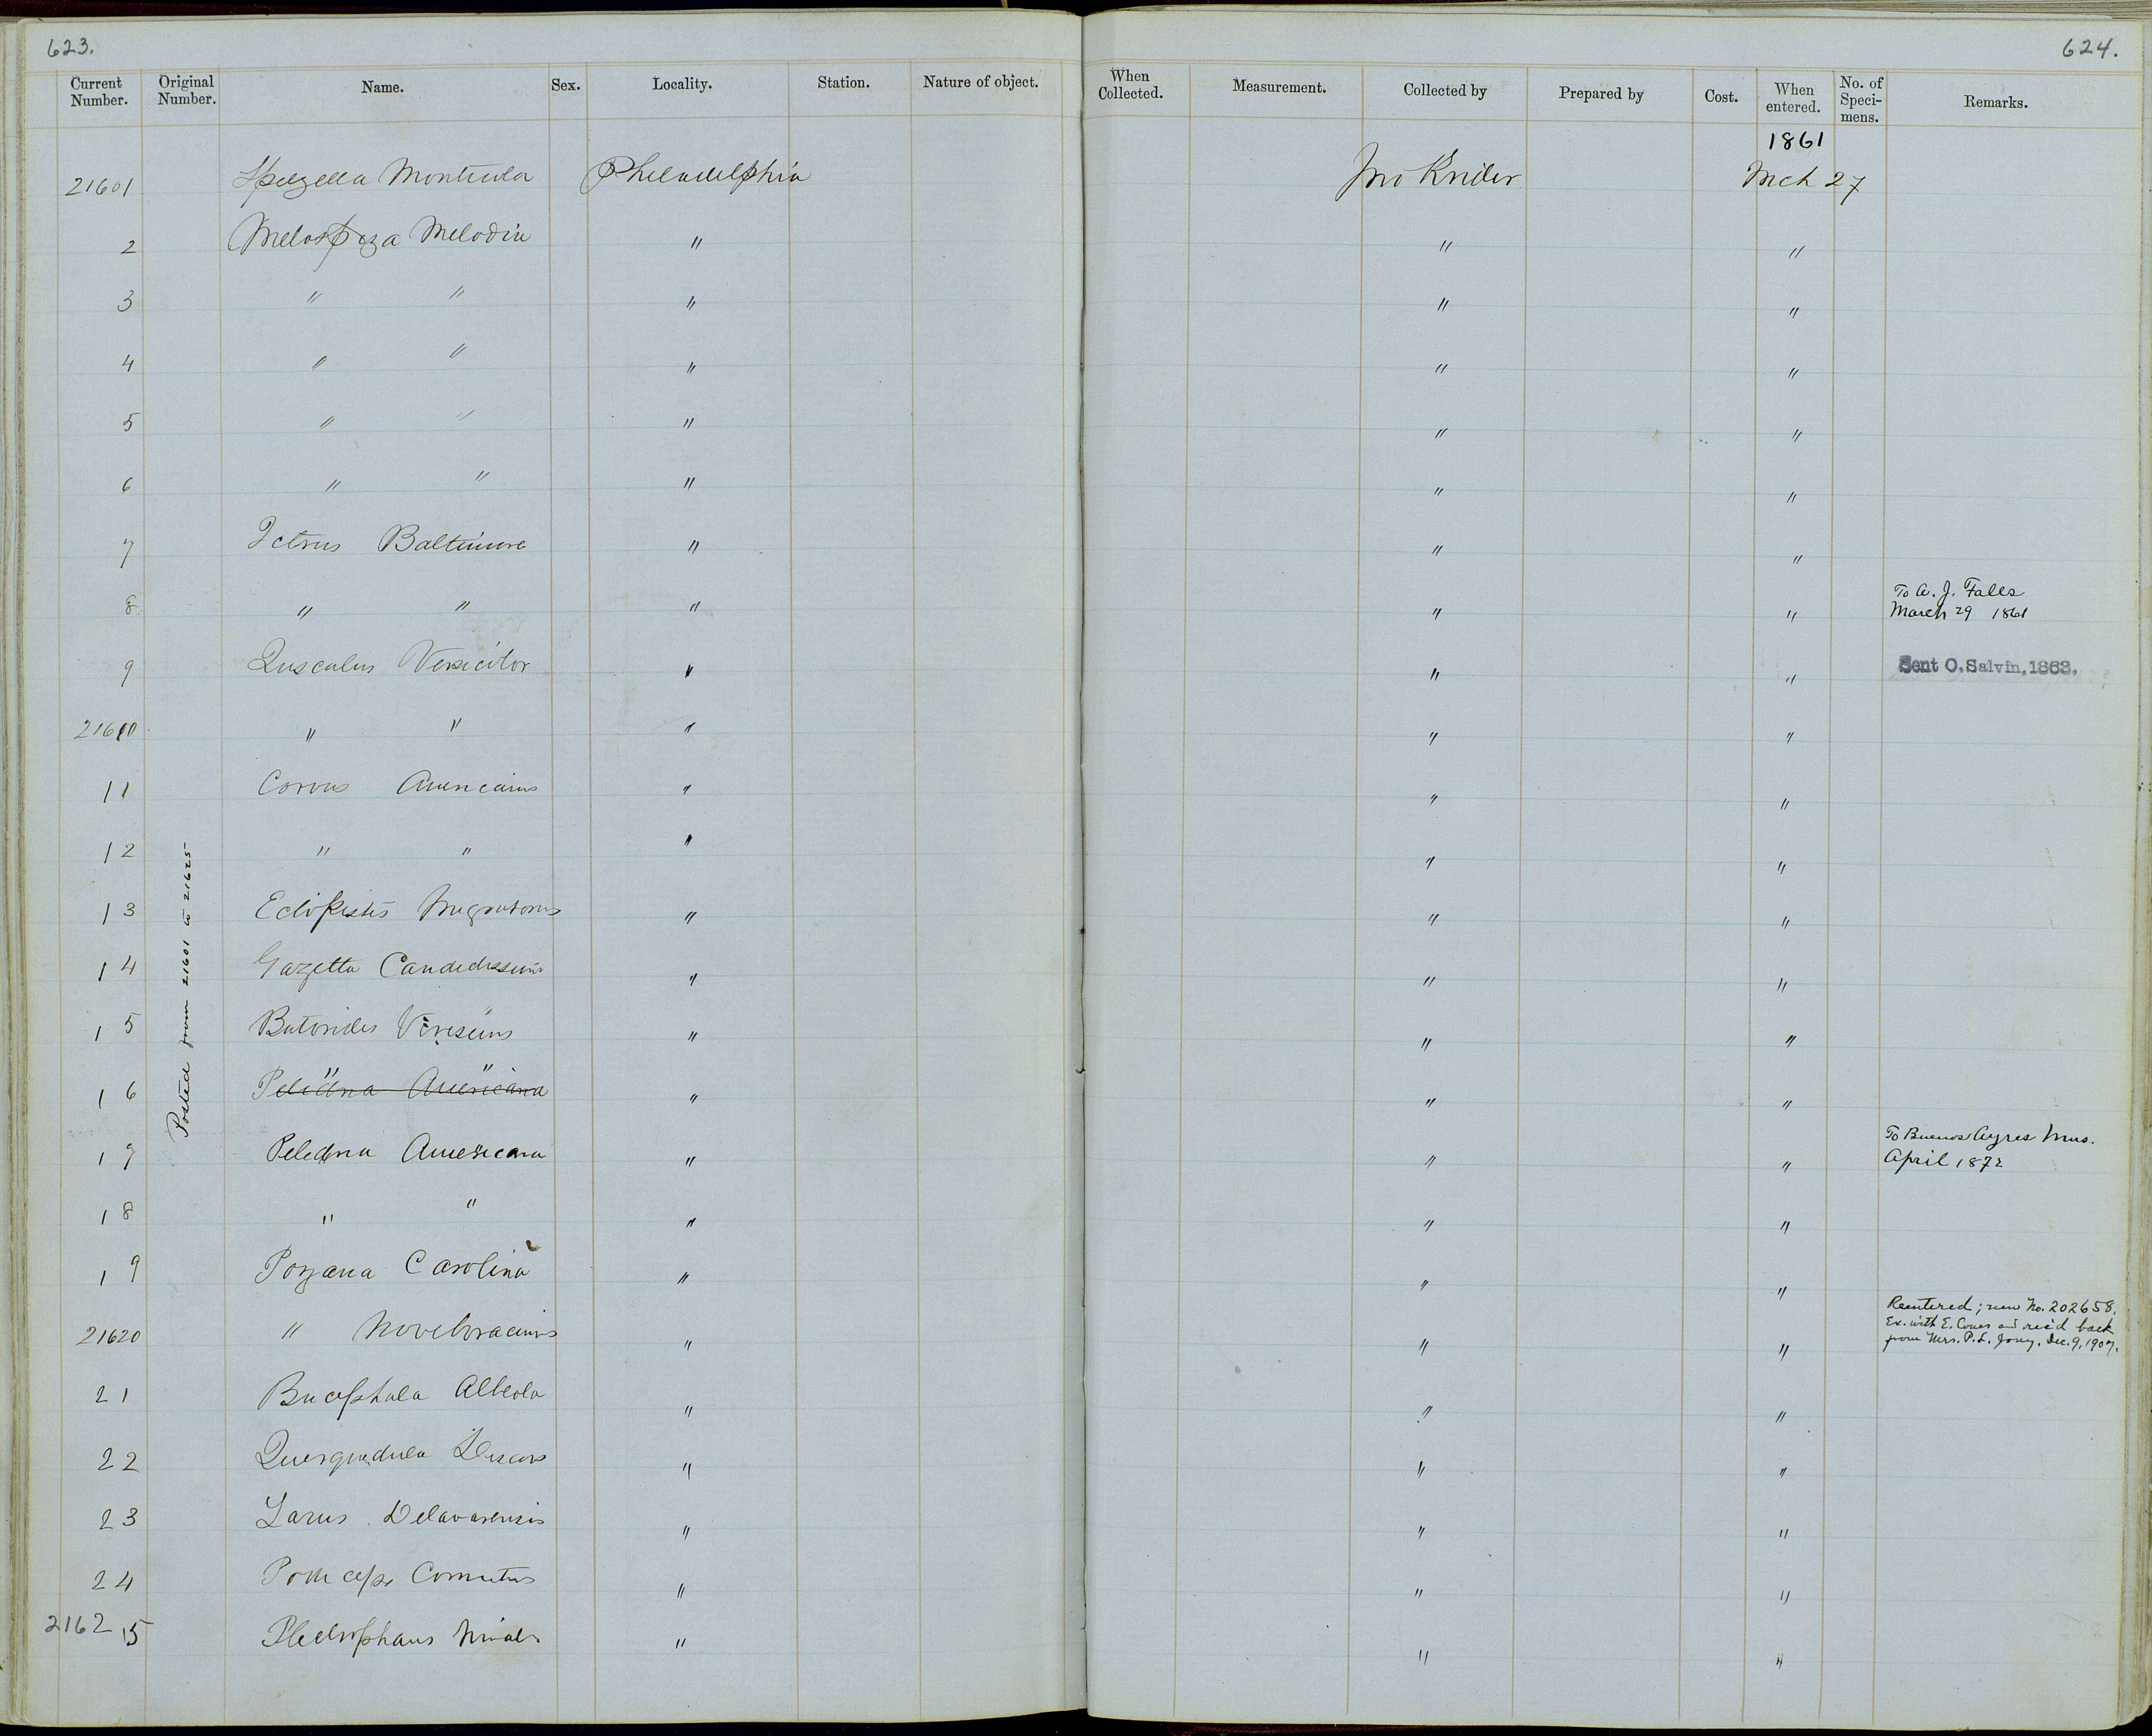 623.
624.
Current Number. Original Number. Name. Sex. Locality. Station. Nature of object. When Collected. Measurement. Collected by Prepared by Cost. When entered. No. of Speci-mens. Remarks.
1861
21601 Spizella Monticola Philadelphia Jno Krider Mch 27
2 Melospiza Melodia " " "
3 " " " " "
4 " " " " "
5 " " " " "
6 " " " " "
7 Icterus Baltimore " " "
8 " " " " " To A. J. Falls March 29 1861
9 Quscalus Versicolor " " " Sent O. Salvin, 1863.
21610 " " " " "
11 Corvus Americanus " " "
12 " " " " "
13 Ectopistes Migratorius " " "
14 Gazetta Candidissima " " "
15 Butorides Virescens " " "
16 Pelidna Americana " " " " "
17 Pelidna Americana " " " To Buenos Ayres Mus. April 1872
18 " " " " "
19 Porzana Carolina " " "
21620 " Noveboracensis " " " Reentered; new No. 202658. Ex. with E. Coues and rec'd back from Mrs. P. L. Jouy, Dec. 9, 1907.
21 Bucephala Albeola " " "
22 Querquedula Discors " " "
23 Larus Delawarensis " " "
24 Podiceps Cornutus " " "
21625 Plectrophanes Nivalis " " "
Posted from 21601 to 21625